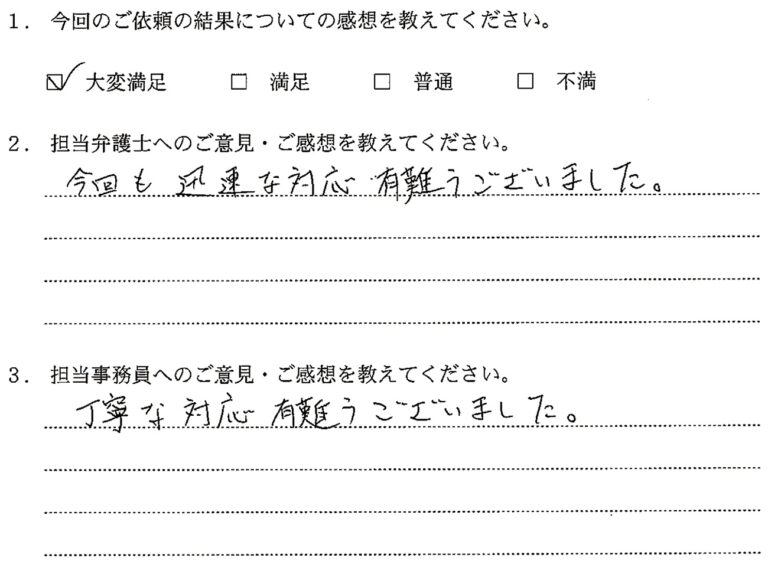 1. 今回のご依頼の結果についての感想を教えてください。
☑ 大変満足 □ 満足 □ 普通 □ 不満
2. 担当弁護士へのご意見・ご感想を教えてください。
今回も 迅速な対応 有難うございました。
3. 担当事務員へのご意見・ご感想を教えてください。
丁寧な対応 有難うございました。